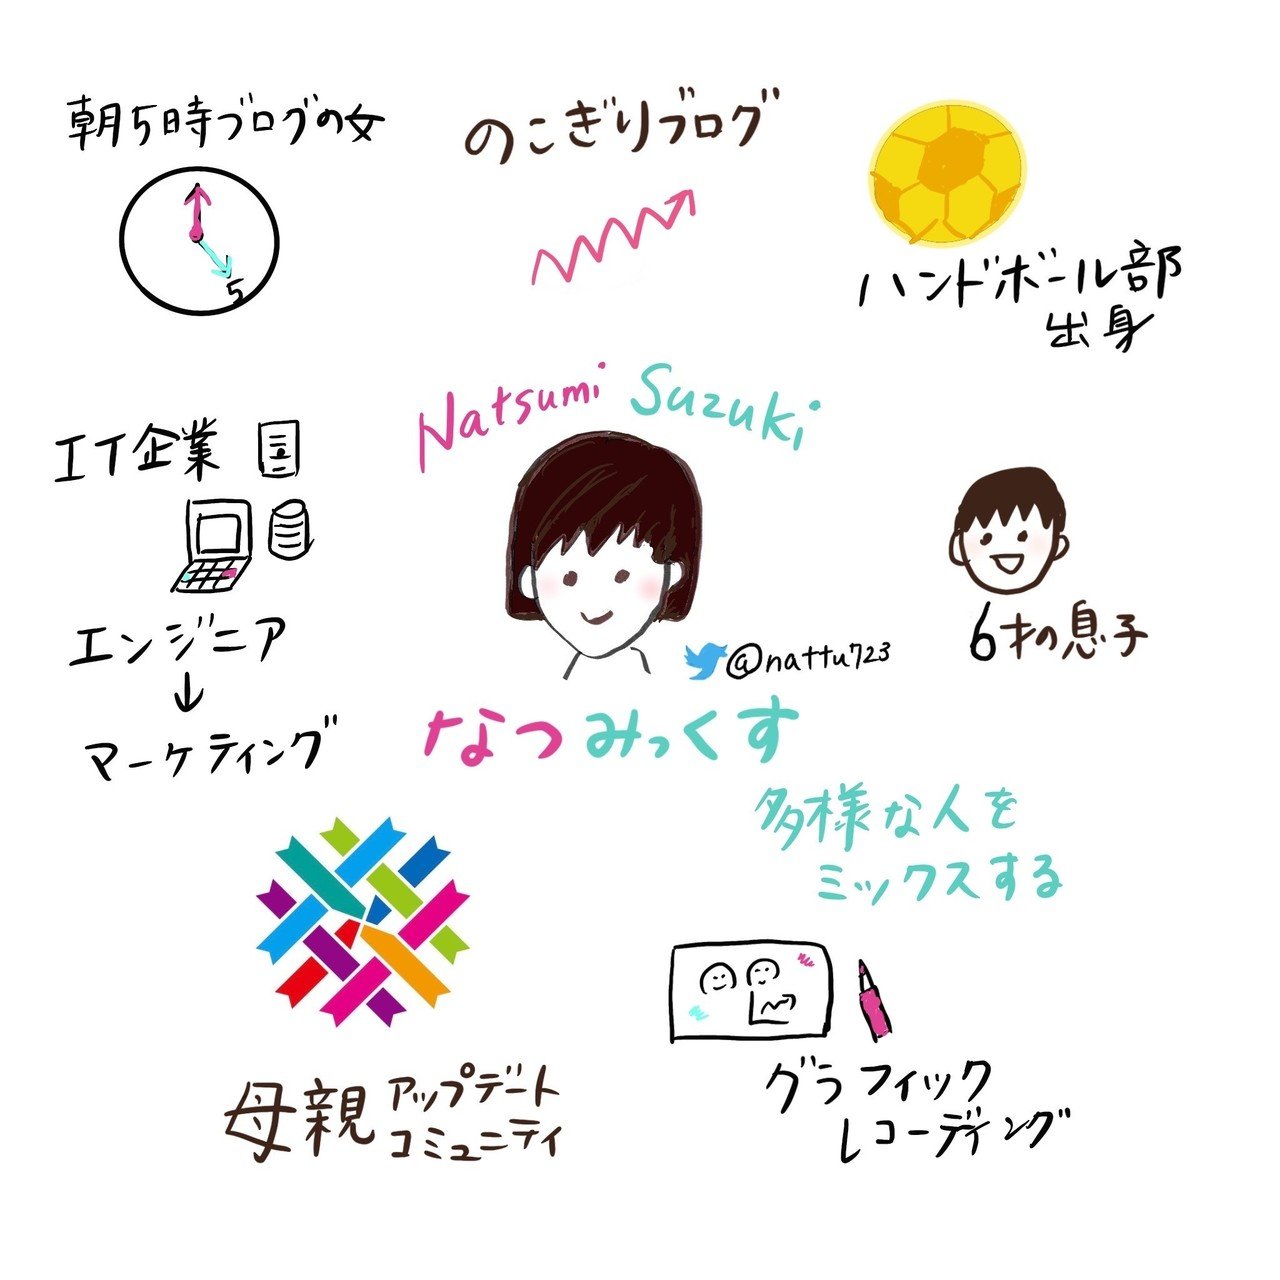 朝5時ブログの女
5
のこぎりブログ
ハンドボール部
出身
Natsumi Suzuki
IT企業
エンジニア
↓
マーケティング
6才の息子
@nattu723
なつみっくす
多様な人を
ミックスする
母親アップデート
コミュニティ
グラフィック
レコーディング